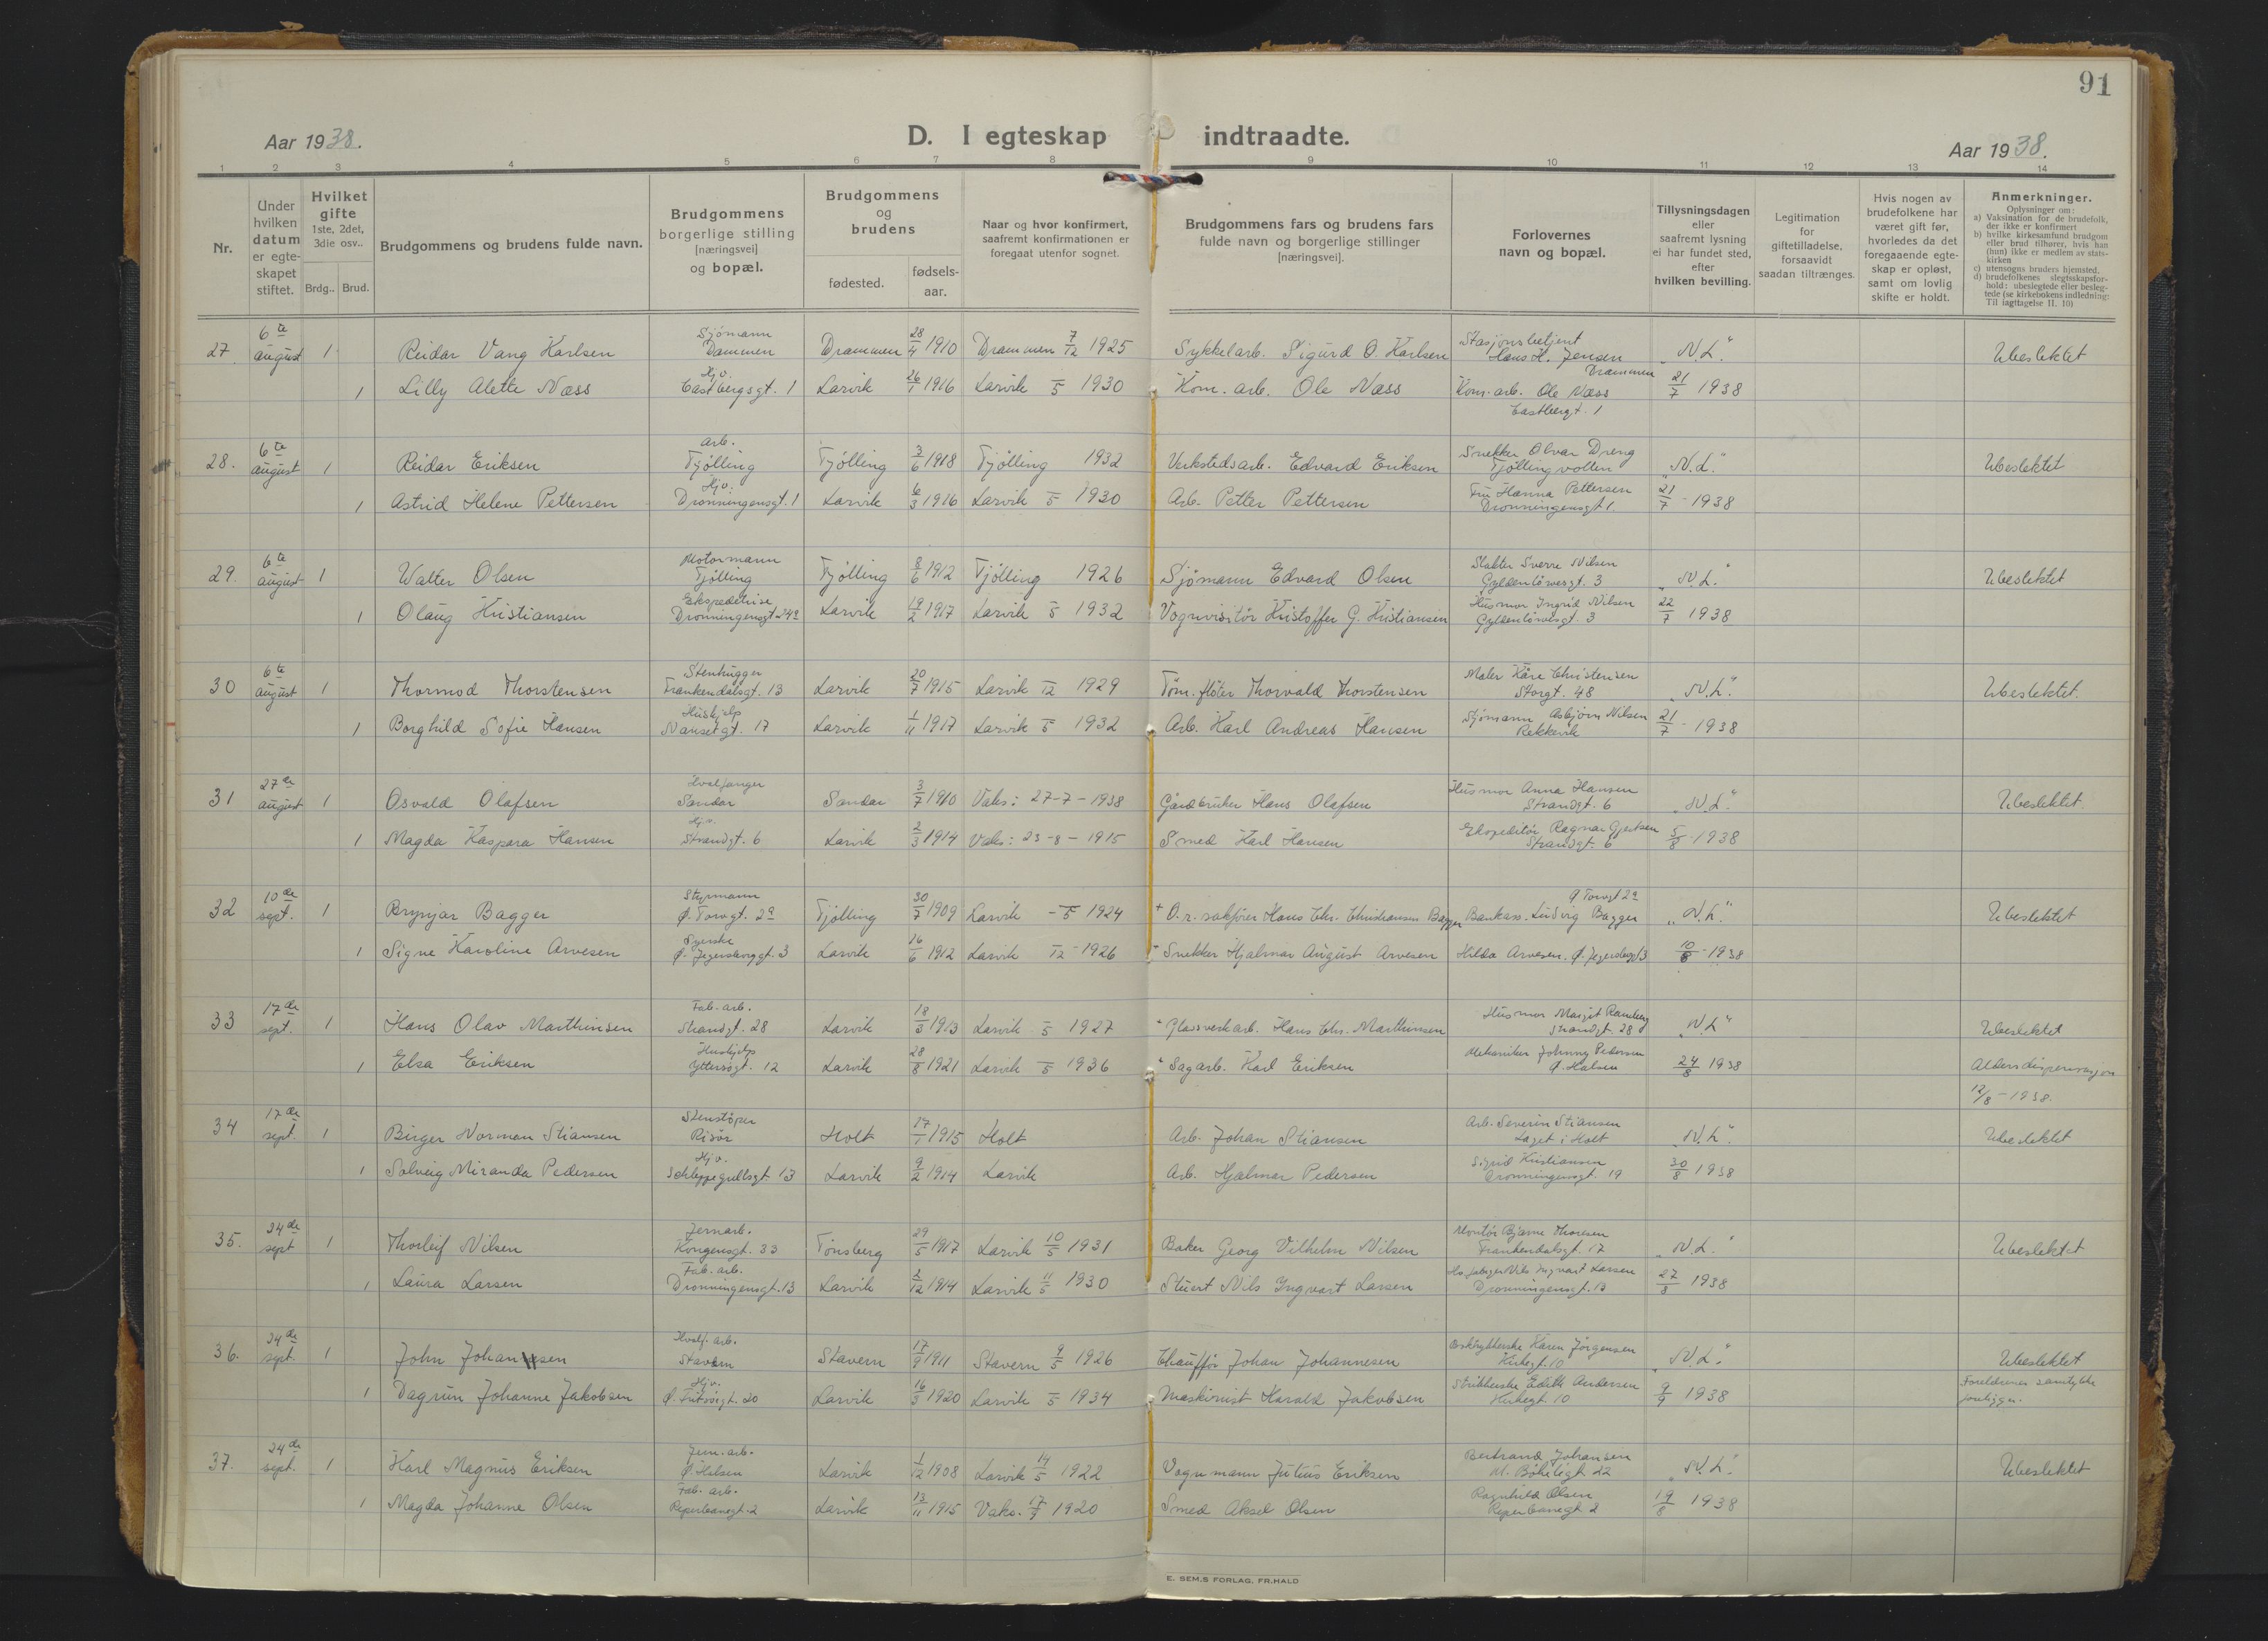 91
Aar 1938.
D. I egteskap indtraadte.
Aar 1938.
1 2 3 4 5 6 7 8 9 10 11 12 13 14
Nr.
Under hvilken datum er egteskapet stiftet.
Hvilket gifte 1ste, 2det, 3die osv..
Brdg.. Brud.
Brudgommens og brudens fulde navn.
Brudgommens borgerlige stilling [næringsvei] og bopæl.
Brudgommens og brudens
fødested.
fødsels-aar.
Naar og hvor konfirmert, saafremt konfirmationen er foregaat utenfor sognet.
Brudgommens fars og brudens fars fulde navn og borgerlige stillinger [næringsvei].
Forlovernes navn og bopæl.
Tillysningsdagen eller saafremt lysning ei har fundet sted, efter hvilken bevilling.
Legitimation for giftetilladelse, forsaavidt saadan tiltrænges.
Hvis nogen av brudefolkene har været gift før, hvorledes da det foregaaende egteskap er opløst, samt om lovlig skifte er holdt.
Anmerkninger.
Oplysninger om:
a) Vaksination for de brudefolk, der ikke er konfirmert
b) hvilke kirkesamfund brudgom eller brud tilhører, hvis han (hun) ikke er medlem av statskirken
c) utensogns bruders hjemsted.
d) brudefolkenes slegtsskapsforhold: ubeslegtede eller beslegtede (se kirkebokens indledning: Til iagttagelse II. 10)
27 6te august 1 Reidar Vang Karlsen Sjömann Dammen Drammen 28/4 1910 Drammen 7/12 1925 Sykkelarb. Sigurd O. Karlsen Stasjonsbetjent Hans H. Jensen Drammen "N.L." Ubeslektet
1 Lilly Alette Næss Hjv. Castbergsgt. 1 Larvik 26/1 1916 Larvik /5 1930 Kom. arb. Ole Næss Kom. arb. Ole Næss Castbergt. 1 21/7 1938
28. 6te august 1 Reidar Eriksen Arb. Tjölling Tjölling 3/6 1918 Tjölling 1932 Verkstedsarb. Edvard Eriksen Snekker Olvar Dreng Tjöllingvollen "N.L." Ubeslektet
1 Astrid Helene Pettersen Hjv. Dronningensgt. 1 Larvik 6/3 1916 Larvik /5 1930 Arb. Petter Pettersen Fru Hanna Pettersen Dronningensgt 1. 21/7 - 1938
29. 6te august 1 Walter Olsen Motormann Tjölling Tjölling 8/6 1912 Tjölling 1926 Sjömann Edvard Olsen Slakter Sverre Nilsen Gyldenlövesgt. 3 "N.L." Ubeslektet
1 Olaug Kristiansen Ekspeditrise Dronningensgt 24a Larvik 19/2 1917 Larvik /5 1932 Vognvisitör Kristoffer G. Kristiansen Husmor Ingrid Nilsen Gyldenlövesgt. 3 22/7 1938
30 6te august 1 Thormod Thorstensen Stenhugger Frankendalsgt. 13 Larvik 20/7 1915 Larvik /12 1929 Töm. flöter Thorvald Thorstensen Maler Kåre Christensen Storgt. 48 "N.L." Ubeslektet.
1 Borghild Sofie Hansen Hushjelp Nansetgt. 17 Larvik 1/11 1917 Larvik /5 1932 Arb. Karl Andreas Hansen Sjömann Asbjörn Nilsen Rekkevik 21/7 - 1938
31 27de august 1 Osvald Olafsen Hvalfanger Sandar Sandar 3/7 1910 Vaks: 27-7-1938 Gårdbruker Hans Olafsen Husmor Anna Hansen Strandgt. 6 "N.L." Ubeslektet.
1 Magda Kaspara Hansen Hj.v. Strandgt. 6 Larvik 2/3 1914 Vaks: 23-8-1915 Smed Karl Hansen Ekspeditör Ragnar Gjertsen Strandgt. 6 5/8 - 1938
32 10de sept. 1 Brynjar Bagger Styrmann Ø. Torvgt. 2a Tjölling 30/7 1909 Larvik - /5 1924 + O.r. sakförer Hans Chr. Christiansen Bagger Bankass. Ludvig Bagger Ø Torvgt 2a "N.L." Ubeslektet
1 Signe Karoline Arvesen Syerske Ø. Jegersborggt. 3 Larvik 16/6 1912 Larvik /12 - 1926 + Snekker Hjalmar August Arvesen Hilda Arvesen. Ø. Jegersbggt 3 10/8 - 1938
33 17de sept. 1 Hans Olav Marthinsen Fab. arb. Strandgt. 28 Larvik 18/3 1913 Larvik /5 1927 + Glassverkarb. Hans Chr. Marthinsen Husmor Margit Ramberg Strandgt. 28 "N.L" Ubeslektet
1 Elsa Eriksen Hushjelp Yttersögt. 12 Larvik 28/8 1921 Larvik /5 1936 + Sagarb. Karl Eriksen Mekaniker Johnny Pedersen Ø. Halsen 24/8 1938 Aldersdispensasjon 12/8 - 1938.
34 17de sept. 1 Birger Norman Stiansen Stenstöper Risör Holt 17/1 1915 Holt Arb. Johan Stiansen Arb. Severin Stiansen Laget i Holt "N.L". Ubeslektet
1 Solveig Miranda Pedersen Hjv. Schleppegrellsgt 13 Larvik 9/2 1914 Larvik Arb. Hjalmar Pedersen Sigrid Kristiansen Dronningensgt. 19 30/8 1938
35. 24de sept 1 Thorleif Nilsen Jernarb. Kongensgt. 33 Tönsberg 29/5 1917 Larvik 10/5 1931 Baker Georg Vilhelm Nilsen Montör Bjarne Thoresen Frankendalsgt. 17 "N.L." Ubeslektet
1 Laura Larsen Fab. arb. Dronningensgt. 13 Larvik 2/12 1914 Larvik 11/5 1930 Stuert Nils Ingvart Larsen Nils Ingvart Larsen Dronningensgt. 13 27/8 1938
36. 24de sept. 1 John Johannesen Hvalf. arb. Stavern Stavern 17/9 1911 Stavern 9/5 1926 Chauffør Johan Johannesen Karen Jörgensen Kirkegt. 10 "N.L." Ubeslektet
1 Dagrun Johanne Jakobsen Hjv. Ø. Fritsöigt. 20 Larvik 16/5 1920 Larvik /5 1934 Maskinist Harald Jakobsen Edith Andersen Kirkegt. 10 9/9 1938 Foreldrenes samtykke foreligger.
37. 24de sept. 1 Karl Magnus Eriksen Jern. arb. Ø. Halsen Larvik 1/12 1908 Larvik 14/5 1922 Vognmann Julius Eriksen Bertrand Johansen N. Bökeligt 22 "N.L." Ubeslektet
1 Magda Johanne Olsen Fab. arb. Reperbanegt. 2 Larvik 13/11 1915 Vaks. 17/7 1920 Smed Aksel Olsen Ragnhild Olsen Reperbanegt 2 19/8 1938
E. SEM.S FORLAG, FR.HALD